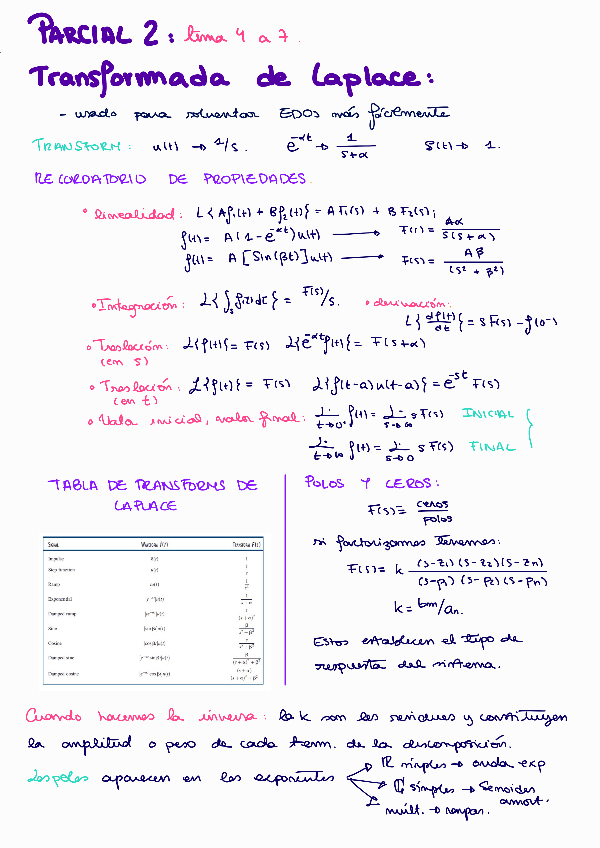 PARCIAL 2: tema 4 a 7.
Transformada de Laplace:
- usado para solventar EDOs más fácilmente
TRANSFORM: u(t) → 1/s. e^-αt → 1/(s+α) δ(t) → 1.
RECORDATORIO DE PROPIEDADES.
• linealidad: L{Af₁(t) + Bf₂(t)} = A F₁(s) + B F₂(s);
f(t) = A(1-e^-αt)u(t) → F(s) = Aα/(s(s+α))
f(t) = A[Sin(βt)]u(t) → F(s) = Aβ/(s²+β²)
• Integración: L{∫f(τ)dτ} = F(s)/s. • derivación:
L{df(t)/dt} = s F(s) - f(0-)
• Traslación: L{f(t)} = F(s) L{e^-αt f(t)} = F(s+α)
(en s)
• Traslación: L{f(t)} = F(s) L{f(t-a)u(t-a)} = e^-st F(s)
(en t)
• Valor inicial, valor final: lim t→0+ f(t) = lim s→∞ s F(s) INICIAL
lim t→∞ f(t) = lim s→0 s F(s) FINAL
TABLA DE TRANSFORMS DE
LAPLACE
Impulse
Step function
Ramp
Exponential
Damped ramp
Sine
Cosine
Damped sine
Damped cosine
POLOS Y CEROS:
F(s) = ceros/polos
si factorizamos tenemos:
F(s) = k (s-z₁)(s-z₂)(s-zn)/(s-p₁)(s-p₂)(s-pn)
k = bm/an.
Estos establecen el tipo de
respuesta del sistema.
Cuando hacemos la inversa: la k son les residues y constituyen
la amplitud o peso de cada term. de la discomposición.
Los polos aparecen en los exponentes
ℝ simples → onda exp
ℂ simples → Senoides
amort.
múlt. → rampas.